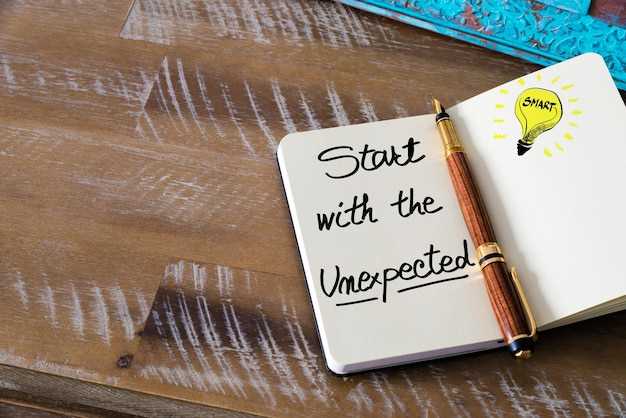 Start
with the
Unexpected
SMART
SMART